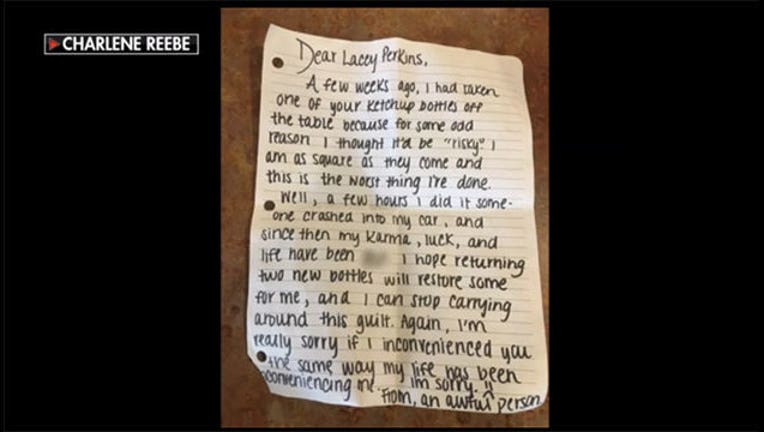 CHARLENE REEBE
Dear Lacey Perkins,
A few weeks ago, I had taken
one of your ketchup bottles off
the table because for some odd
reason I thought it'd be "risky." I
am as square as they come and
this is the worst thing I've done.
Well, a few hours I did it some-
one crashed into my car, and
since then my karma, luck, and
life have been I hope returning
two new bottles will restore some
for me, and I can stop carrying
around this guilt. Again, I'm
really sorry if I inconvenienced you
the same way my life has been
inconveniencing me. I'm sorry. !!
From, an awful person